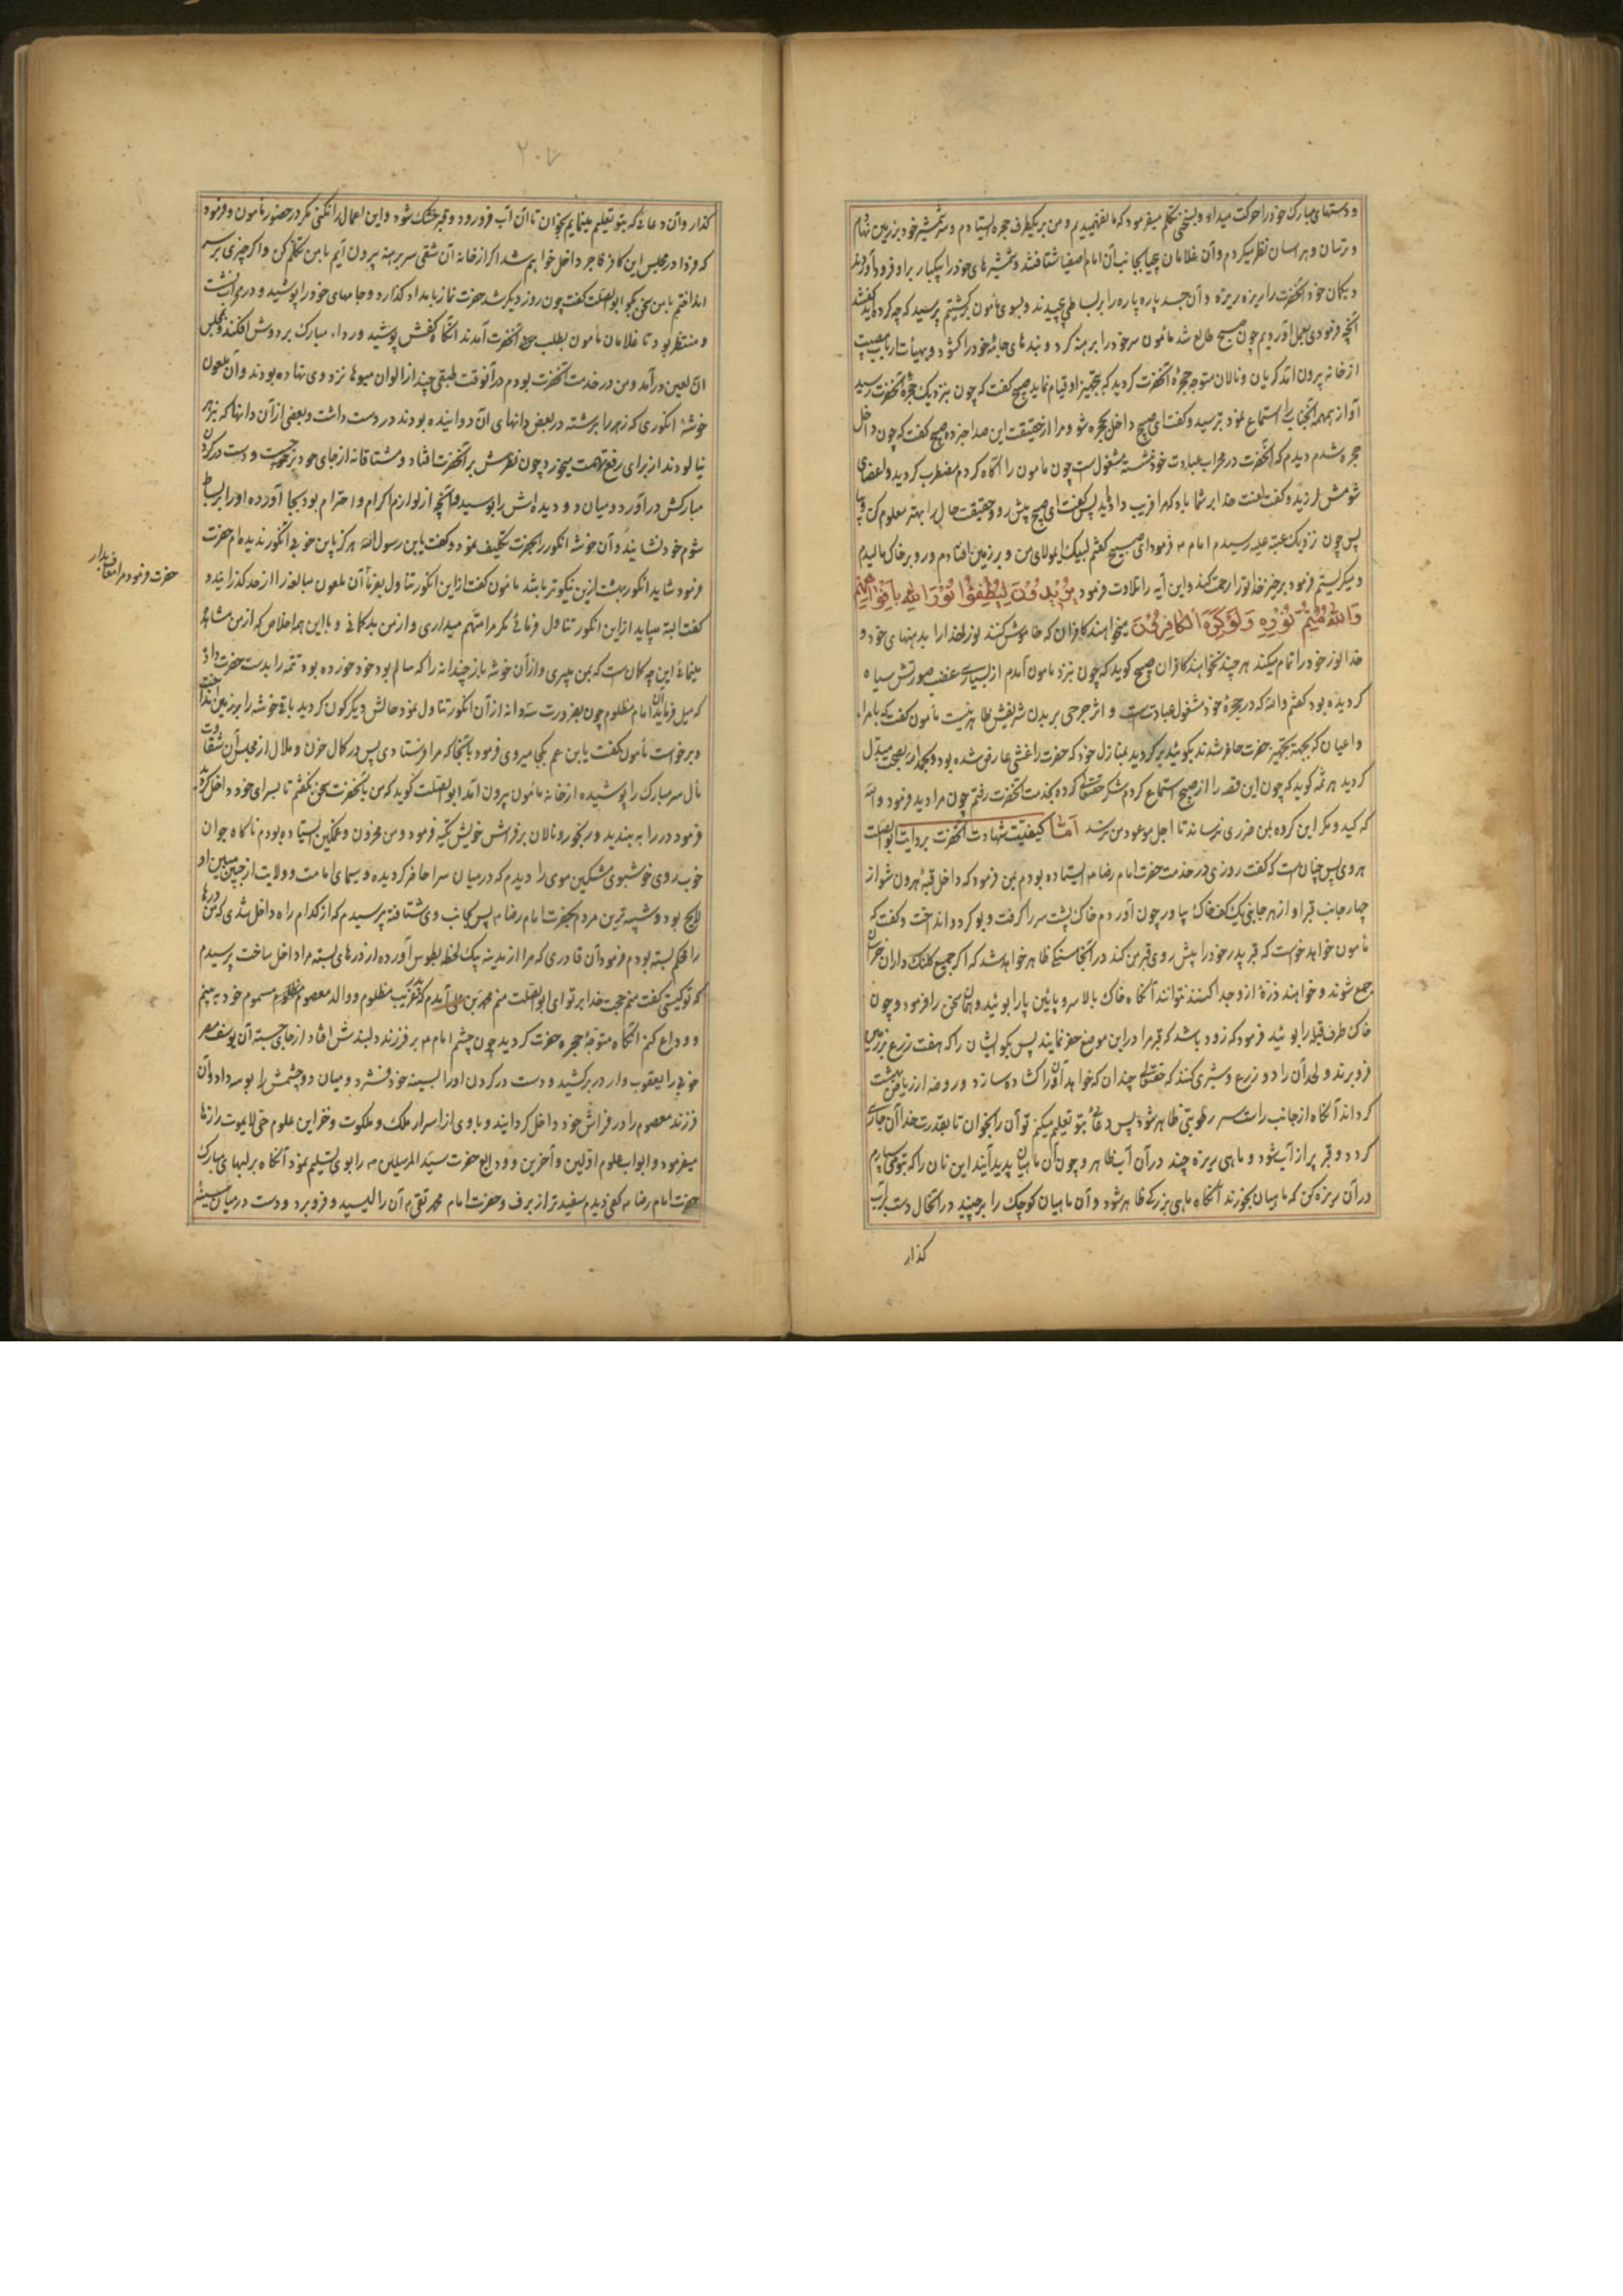 و دستهای مبارک خود را حرکت میداد و بسخنی تکلم میفرمود که ما نفهمیدیم و من بر یکطرف حجره ایستادم و سر شمشیر خود بر زمین نهادم
و ترسان و هراسان نظر میکردم و آن غلامان بیحیا بجانب آن امام اصفیا شتافتند و شمشیرهای خود را یکبار بر او فرود آوردند
و بکمان خود آنحضرت را ریزه ریزه و آن جسد پاره پاره را بر بساط پیچیدند و بسوی مأمون برگشتیم پرسید که چه کردید گفتند
آنچه فرمودی بعمل آوردیم چون صبح طالع شد مأمون سر خود را برهنه کرد و بندهای جامهٔ خود را کشود و بهیأت ارباب مصیبت
از خانه بیرون آمد گریان و نالان متوجه حجرهٔ آنحضرت گردید که بتجهیز او قیام نماید صبیح گفت که چون بنزدیک حجرهٔ آنحضرت رسید
آواز همهمه آنجناب را استماع نمود بترسید و گفت ای صبیح داخل حجره شو و مرا از حقیقت این صدا خبر ده صبیح گفت که چون داخل
حجره شدم دیدم که آنحضرت در محراب عبادت خود نشسته مشغول است چون مأمون را آگاه کردم مضطرب گردید و اعضای
شومش لرزید و گفت لعنت خدا بر شما باد که مرا فریب دادید پس گفت ای صبیح پیش رو و حقیقت حال را بهتر معلوم کن و بیا
پس چون نزدیک عتبه علیه رسیدم امام ع فرمود ای صبیح گفتم لبیک ای مولای من و بر زمین افتادم و رو بر خاک مالیدم
و میگریستم فرمود برخیز خدا تو را رحمت کند و این آیه را تلاوت فرمود یُرِیدُونَ لِیُطْفِؤُا نُورَ اللهِ بِأَفْوَاهِهِمْ
وَاللهُ مُتِمُّ نُورِهِ وَلَوْ کَرِهَ الْکَافِرُونَ میخواهند کافران که خاموش کنند نور خدا را بدهنهای خود و
خدا نور خود را تمام میکند هر چند نخواهند کافران صبیح گوید که چون بنزد مامون آمدم از بسیاری غضب صورتش سیاه
گردیده بود گفتم والله که در حجرهٔ خود مشغول عبادتست و اثر جرحی بر بدن شریفش ظاهر نیست مأمون گفت که بامرا
و اعیان که بجهة تجهیز حضرت حاضر شدند بگوئید برگردید بمنازل خود که حضرت را غشی عارض شده بود و بحمدالله بصحت مبدل
گردید هرثمه گوید که چون این قصه را از صبیح استماع کردم شکر حقتعالی کرده بخدمت آنحضرت رفتم چون مرا دید فرمود والله
که کید و مکر این گروه بمن ضرری نرساند تا اجل موعود من نرسد اما کیفیت شهادت آنحضرت بروایت ابوالصلت
هروی پس چنان است که گفت روزی در خدمت حضرت امام رضا ع ایستاده بودم بمن فرمود که داخل قبهٔ هرون شو از
چهار جانب قبر او از هر جانبی یک کف خاک بیاور چون آوردم خاک پشت سر را گرفت و بو کرد و انداخت و گفت که
مأمون خواهد خواست که قبر پدر خود را پیش روی قبر من کند در آنجا سنگی ظاهر خواهد شد که اگر جمیع کلنک داران خراسان
جمع شوند و خواهند ذرهٔ از او جدا کنند نتوانند آنگاه خاک بالا سر و پائین پا را بوئید و همان سخن را فرمود و چون
خاک طرف قبله را بوئید فرمود که زود باشد که قبر مرا در این موضع حفر نمایند پس بگو ایشان را که هفت زرع بزمین
فرو برند و لحد آن را دو زرع و شبری کنند که حقتعالی چندان که خواهد آنرا گشاده سازد و روضه از ریاض بهشت
گرداند آنگاه از جانب راست سر رطوبتی ظاهر شود پس دعائی بتو تعلیم میکنم تو آن را بخوان تا بقدرت خدا آن جاری
گردد و قبر پر از آب شود و ماهی ریزه چند در آن آب ظاهر و چون آن ماهیان پدید آیند این نان را که بتو می سپارم
در آن ریزه کن که ماهیان بخورند آنگاه ماهی بزرگی ظاهر شود و آن ماهیان کوچک را برچیند در آنحال دست بر آب
گذار
۲۰۷
گذار و آن دعائی که بتو تعلیم مینمایم بخوان تا آن آب فرو رود و قبر خشک شود و این اعمال را نکنی مگر در حضور مأمون و فرمود
که فردا در مجلس این کافر فاجر داخل خواهم شد اگر از خانه آن شقی سر برهنه بیرون آیم با من تکلم کن و اگر چیزی بر سر
انداختم با من سخن مگو ابوالصلت گفت چون روز دیگر شد حضرت نماز بامداد گذارد و جامهای خود را پوشید و در محراب نشست
و منتظر بود تا غلامان مأمون بطلب آنحضرت آمدند آنگاه کفش پوشید و رداء مبارک بر دوش افکند و بمجلس
آن لعین درآمد و من در خدمت آنحضرت بودم در آنوقت طبقی چند از الوان میوها نزد وی نهاده بودند و آن ملعون
خوشهٔ انگوری که زهر را برشته در بعض دانهای آن دوانیده بودند در دست داشت و بعضی از آن دانها که بزهر
نیالودند از برای رفع تهمت میخورد چون نظرش بر آنحضرت افتاد مشتاقانه از جای خود برجست و دست در گردن
مبارکش درآورد و میان دو دیده اش را بوسید و آنچه از لوازم اکرام و احترام بود بجا آورده او را بر بساط
شوم خود نشانید و آن خوشه انگور را بحضرت تکلیف نمود و گفت یابن رسول الله هرگز باین خوبی انگور ندیده ام حضرت
فرمود شاید انگور بهشت ازین نیکوتر باشد مأمون گفت ازاین انگور تناول بفرما آن ملعون مبالغه را از حد گذرانید و
گفت البته میباید ازاین انگور تناول فرمائی مگر مرا متهم میداری و از من بدگمانی و با این همه اخلاص که از من مشاهده
مینمائی این چه گمان است که بمن میبری و از آن خوشه باز چند دانه را که سالم بود خود خورده بود تتمه را بدست حضرت داد
که میل فرماید آن امام مظلوم چون بضرورت سه دانه از آن انگور تناول نمود حالش دیگرگون گردید باقی خوشه را بر زمین انداخت
و برخواست مأمون گفت یابن عم بکجا میروی فرمود بآنجا که مرا فرستادی پس در کمال حزن و ملال از مجلس آن شقاوت
مآل سر مبارک را پوشیده از خانه مأمون بیرون آمد ابوالصلت گوید که من با آنحضرت سخن نگفتم تا بسرای خود داخل گردید
فرمود در را به بندید و رنجور و نالان بر فراش خویش تکیه فرمود و من محزون و غمگین ایستاده بودم ناگاه جوان
خوب روی خوشبوی مشکین موی را دیدم که در میان سرا حاضر گردیده و سیمای امامت و ولایت از جبین مبین او
لایح بود و شبیه ترین مردم بحضرت امام رضا ع پس بجانب وی شتافته پرسیدم که از کدام راه داخل شدی که من درها
را محکم بسته بودم فرمود آن قادری که مرا از مدینه بیک لحظه بطوس آورده از درهای بسته مرا داخل ساخت پرسیدم
که تو کیستی گفت منم حجت خدا بر تو ای ابوالصلت منم محمد بن علی آمدم که غریب مظلوم و والد معصوم مسموم خود ببینم
و وداع کنم آنگاه متوجهٔ حجرهٔ حضرت گردید چون چشم امام ع بر فرزند دلبندش افتاد از جای جسته آن یوسف مصر
خوبی را یعقوب وار در بر کشید و دست در گردن او را بسینه خود فشرد و میان دو چشمش را بوسه داد و آن
فرزند معصوم را در فراش خود داخل گردانید و با وی از اسرار ملک و ملکوت و خزاین علوم حی لایموت رازها
میفرمود و ابواب علوم اولین و آخرین و ودایع حضرت سید المرسلین ص را بوی تسلیم نمود آنگاه بر لبهای مبارک
حضرت امام رضا ع کفی دیدم سفیدتر از برف و حضرت امام محمد تقی ع آن را لیسید و فرو برد و دست در میان سینهٔ
حضرت فرمود مرا معاف بدار